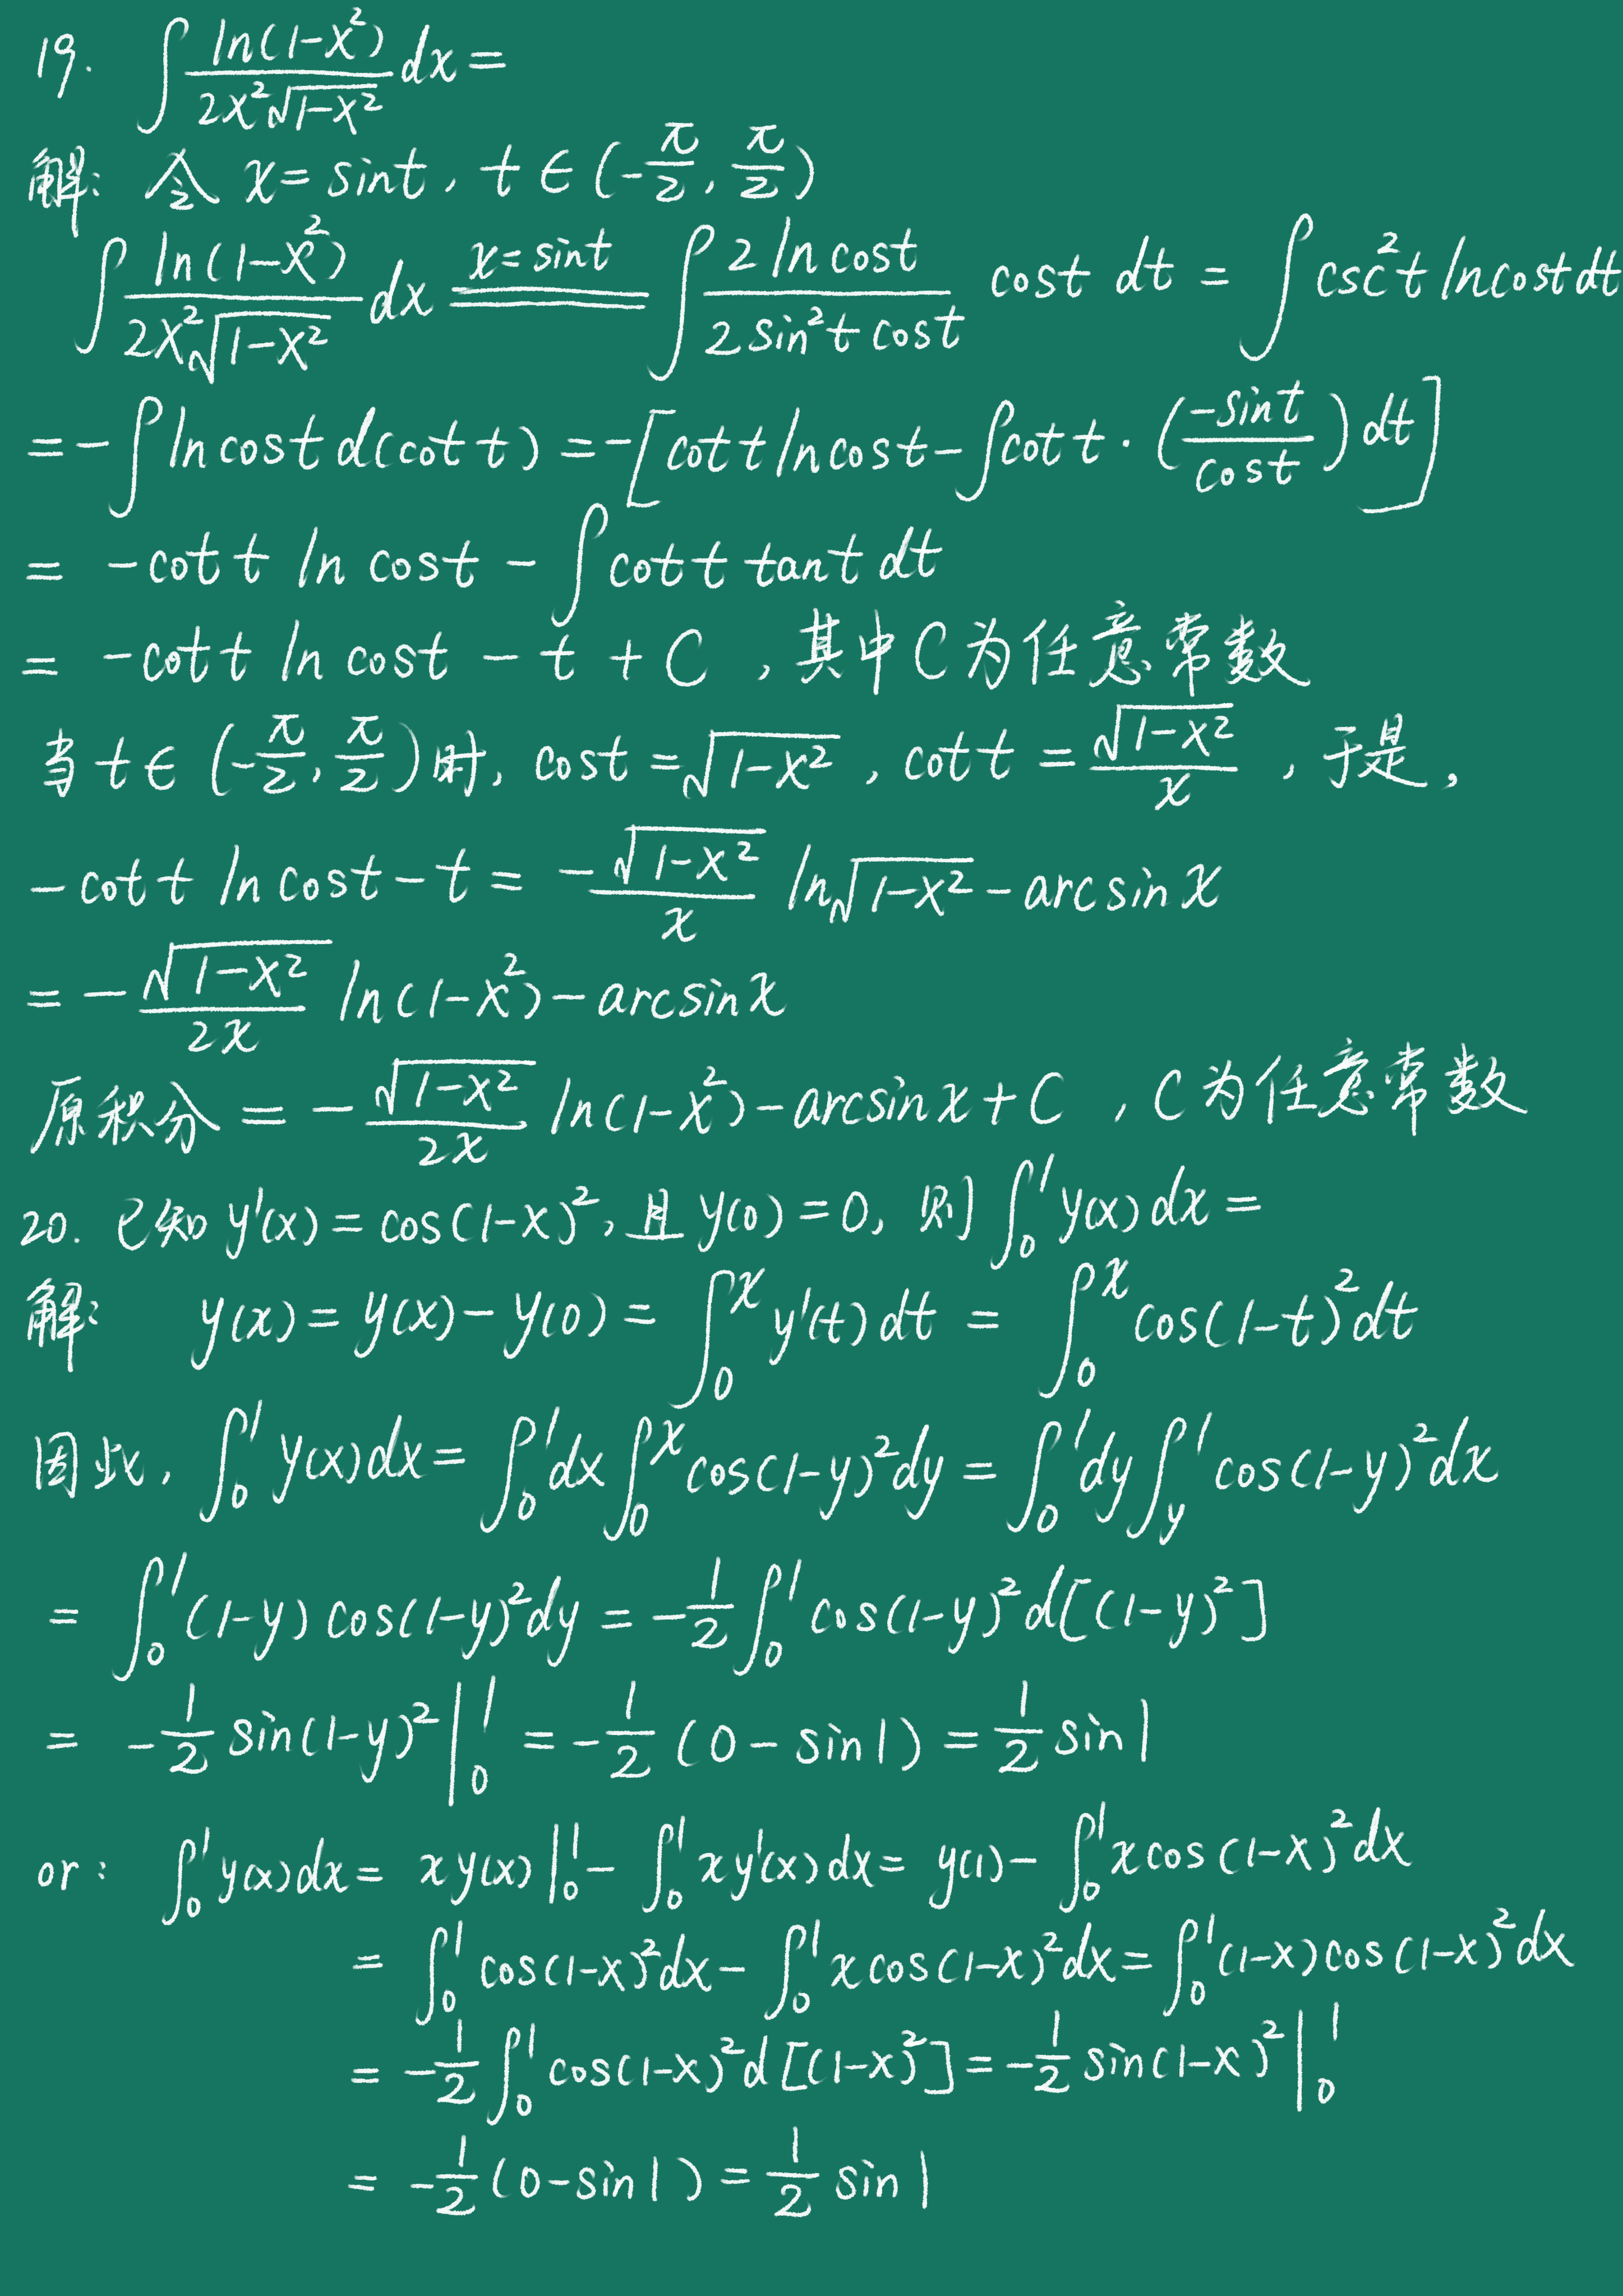 19. ∫ ln(1-x²)/(2x²√(1-x²)) dx =
解: 令 x = sint, t ∈ (-π/2, π/2)
∫ ln(1-x²)/(2x²√(1-x²)) dx ==(x=sint)== ∫ 2 ln cost/(2 sin²t cost) cost dt = ∫ csc²t ln cost dt
= -∫ ln cost d(cot t) = -[cot t ln cost - ∫ cot t · (-sint/cost) dt]
= -cot t ln cost - ∫ cot t tant dt
= -cot t ln cost - t + C , 其中C为任意常数
当 t ∈ (-π/2, π/2)时, cost = √(1-x²), cot t = √(1-x²)/x , 于是,
-cot t ln cost - t = -√(1-x²)/x ln√(1-x²) - arcsin x
= -√(1-x²)/(2x) ln(1-x²) - arcsin x
原积分 = -√(1-x²)/(2x) ln(1-x²) - arcsin x + C , C为任意常数
20. 已知 y'(x) = cos(1-x)², 且 y(0) = 0, 则 ∫₀¹ y(x) dx =
解: y(x) = y(x) - y(0) = ∫₀ˣ y'(t) dt = ∫₀ˣ cos(1-t)² dt
因此, ∫₀¹ y(x)dx = ∫₀¹ dx ∫₀ˣ cos(1-y)² dy = ∫₀¹ dy ∫_y^1 cos(1-y)² dx
= ∫₀¹ (1-y) cos(1-y)² dy = -1/2 ∫₀¹ cos(1-y)² d[(1-y)²]
= -1/2 sin(1-y)² |₀¹ = -1/2 (0 - sin1) = 1/2 sin1
or: ∫₀¹ y(x)dx = xy(x) |₀¹ - ∫₀¹ xy'(x) dx = y(1) - ∫₀¹ x cos(1-x)² dx
= ∫₀¹ cos(1-x)² dx - ∫₀¹ x cos(1-x)² dx = ∫₀¹ (1-x) cos(1-x)² dx
= -1/2 ∫₀¹ cos(1-x)² d[(1-x)²] = -1/2 sin(1-x)² |₀¹
= -1/2 (0 - sin1) = 1/2 sin1